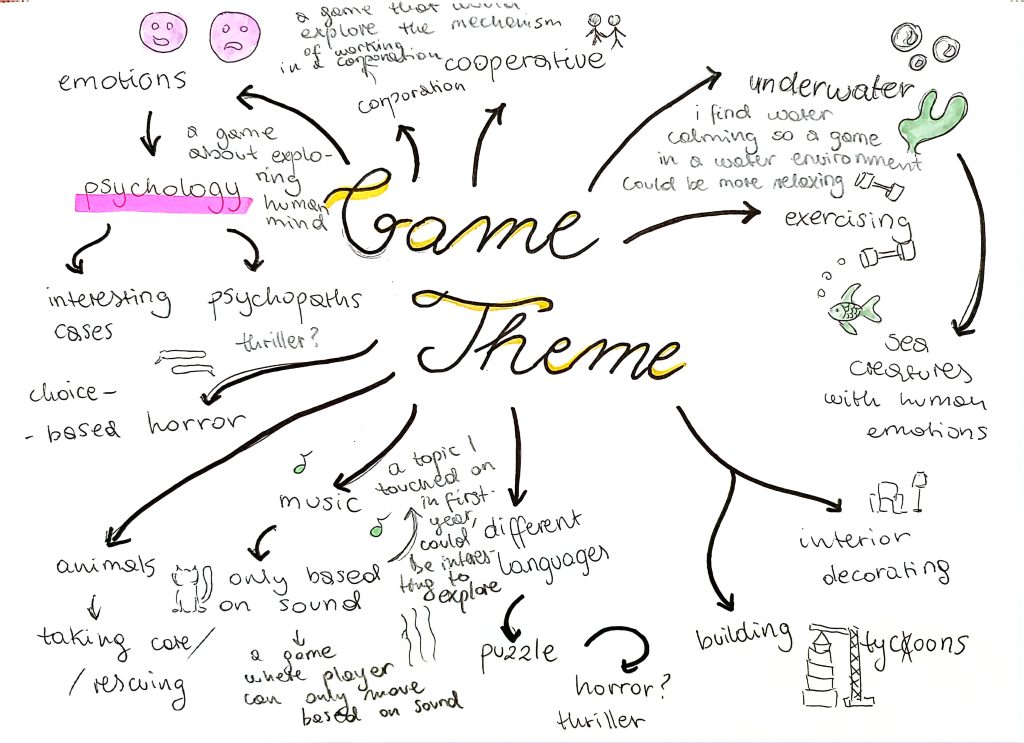 a game that would
explore the mechanism
of working
in a corporation
corporation
cooperative
emotions
a game
about explo-
ring
human
mind
psychology
interesting
cases
psychopaths
thriller?
Game
Theme
underwater
i find water
calming so a game
in a water environment
could be more relaxing
exercising
sea
creatures
with human
emotions
choice-
- based horror
animals
taking care/
/rescuing
music
only based
on sound
a game
where player
can only move
based on sound
a topic I
touched on
in first
year,
could
be interes-
ting to
explore
different
languages
puzzle
horror?
thriller
interior
decorating
building
tycoons